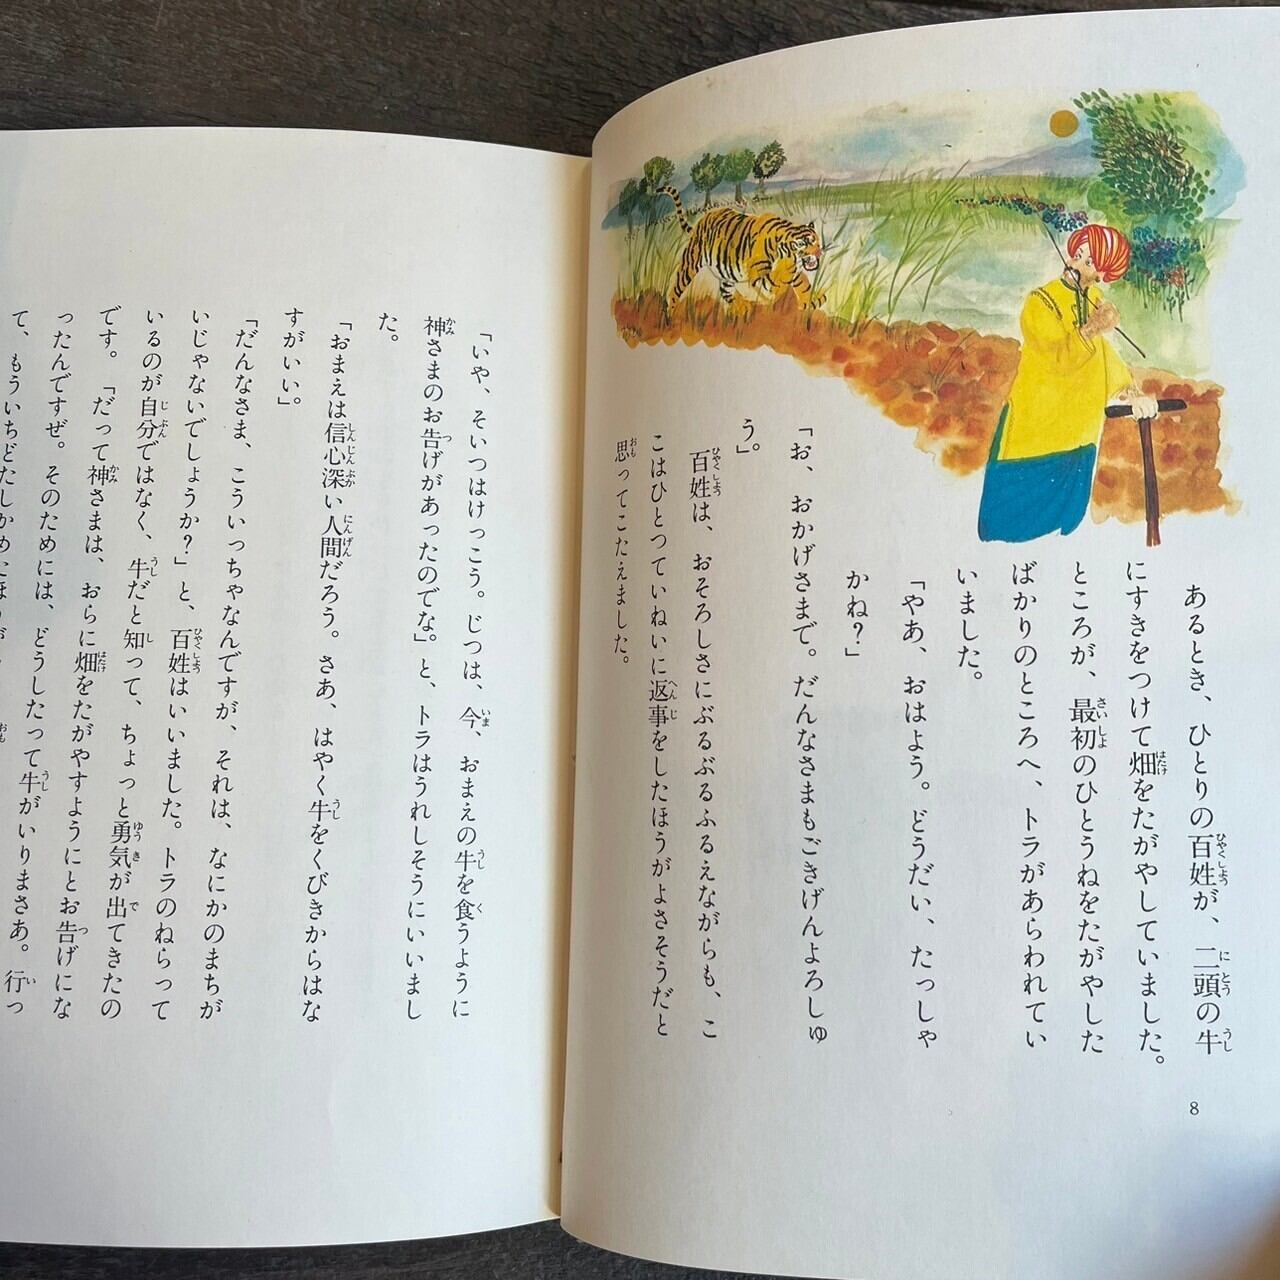 あるとき、ひとりの百姓が、二頭の牛
にすきをつけて畑をたがやしていました。
ところが、最初のひとうねをたがやした
ばかりのところへ、トラがあらわれてい
いました。
「やあ、おはよう。どうだい、たっしゃ
かね?」
「お、おかげさまで。だんなさまもごきげんよろしゅ
う。」
百姓は、おそろしさにぶるぶるふるえながらも、こ
こはひとつていねいに返事をしたほうがよさそうだと
思ってこたえました。
8
「いや、そいつはけっこう。じつは、今、おまえの牛を食うように
神さまのお告げがあったのでな」と、トラはうれしそうにいいまし
た。
「おまえは信心深い人間だろう。さあ、はやく牛をくびきからはな
すがいい」
「だんなさま、こういっちゃなんですが、それは、なにかのまちが
いじゃないでしょうか?」と、百姓はいいました。トラのねらって
いるのが自分ではなく、牛だと知って、ちょっと勇気が出てきたの
です。「だって神さまは、おらに畑をたがやすようにとお告げにな
ったんですぜ。そのためには、どうしたって牛がいりまさあ。行っ
て、もういちどたしかめたほうが